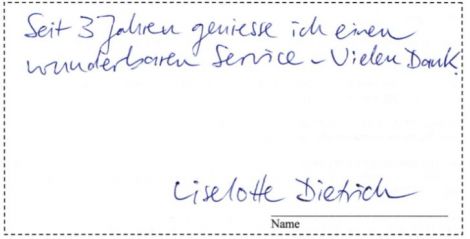 Seit 3 Jahren geniesse ich einen
wunderbaren Service – Vielen Dank
Liselotte Dietrich
Name